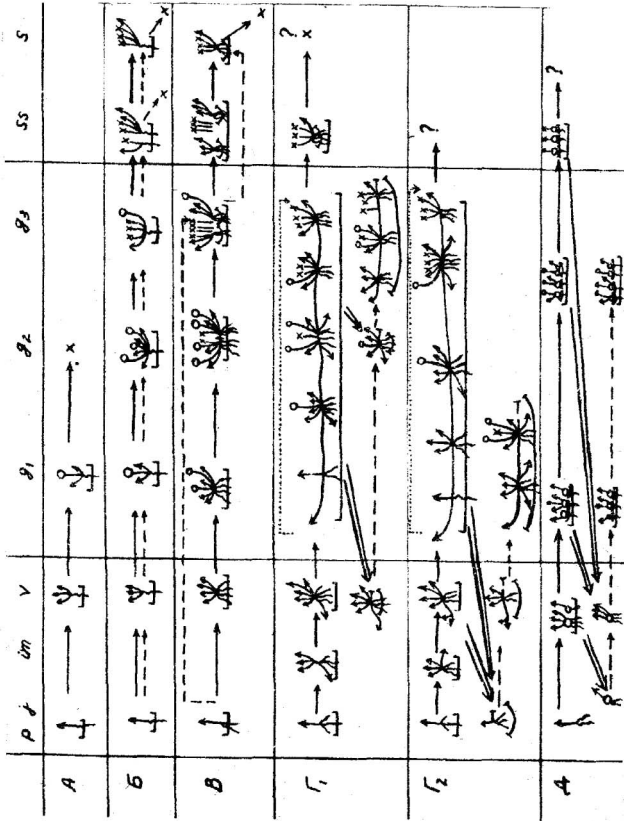 p j im v g₁ g₂ g₃ ss s
А x
Б x x
В x
Г₁ ? x
Г₂ ?
Д ?